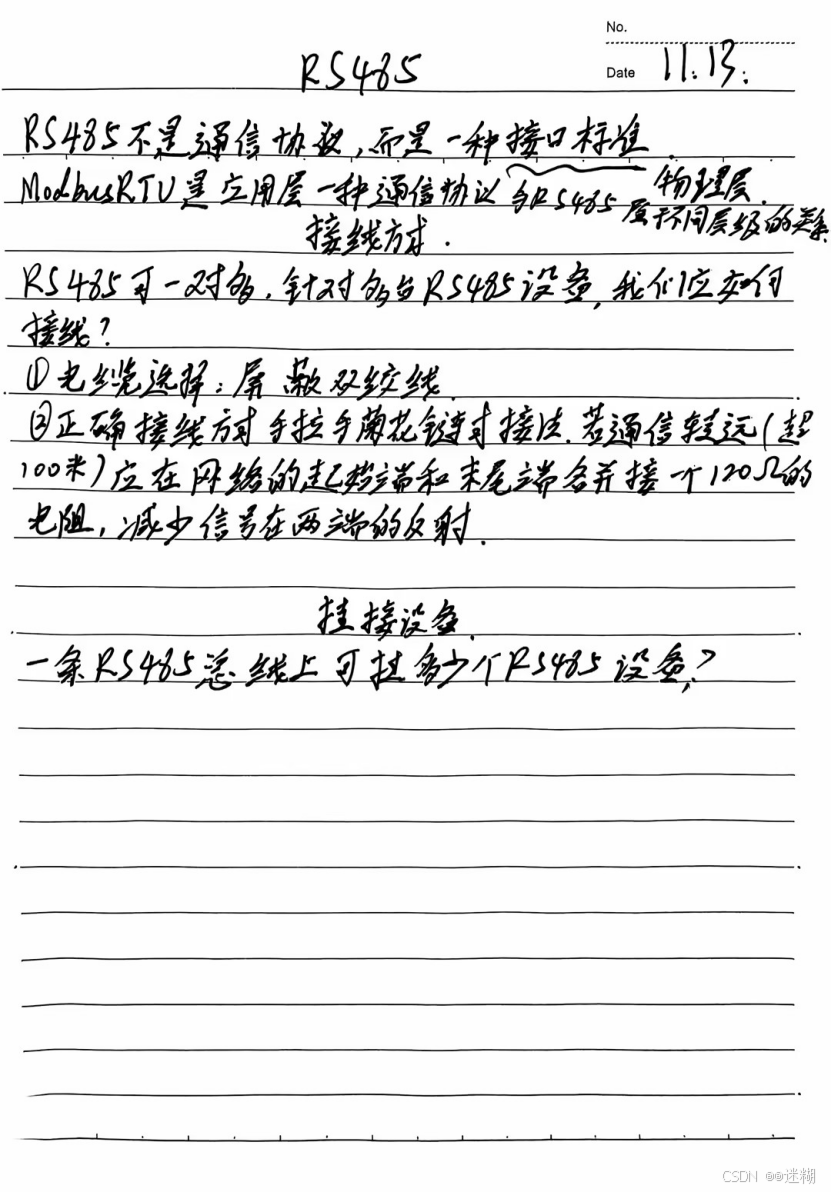 No.
Date 11.13.
RS485
RS485不是通信协议，而是一种接口标准
ModbusRTU是应用层一种通信协议与RS485 物理层.
属于不同层级的关系
接线方式.
RS485可一对多，针对多台RS485设备，我们应如何
接线？
①电缆选择：屏蔽双绞线.
②正确接线方式手拉手菊花链式接法.若通信较远(超
100米)应在网络的起始端和末尾端各并接一个120Ω的
电阻，减少信号在两端的反射.
挂接设备.
一条RS485总线上可挂多少个RS485设备？
CSDN @@迷糊